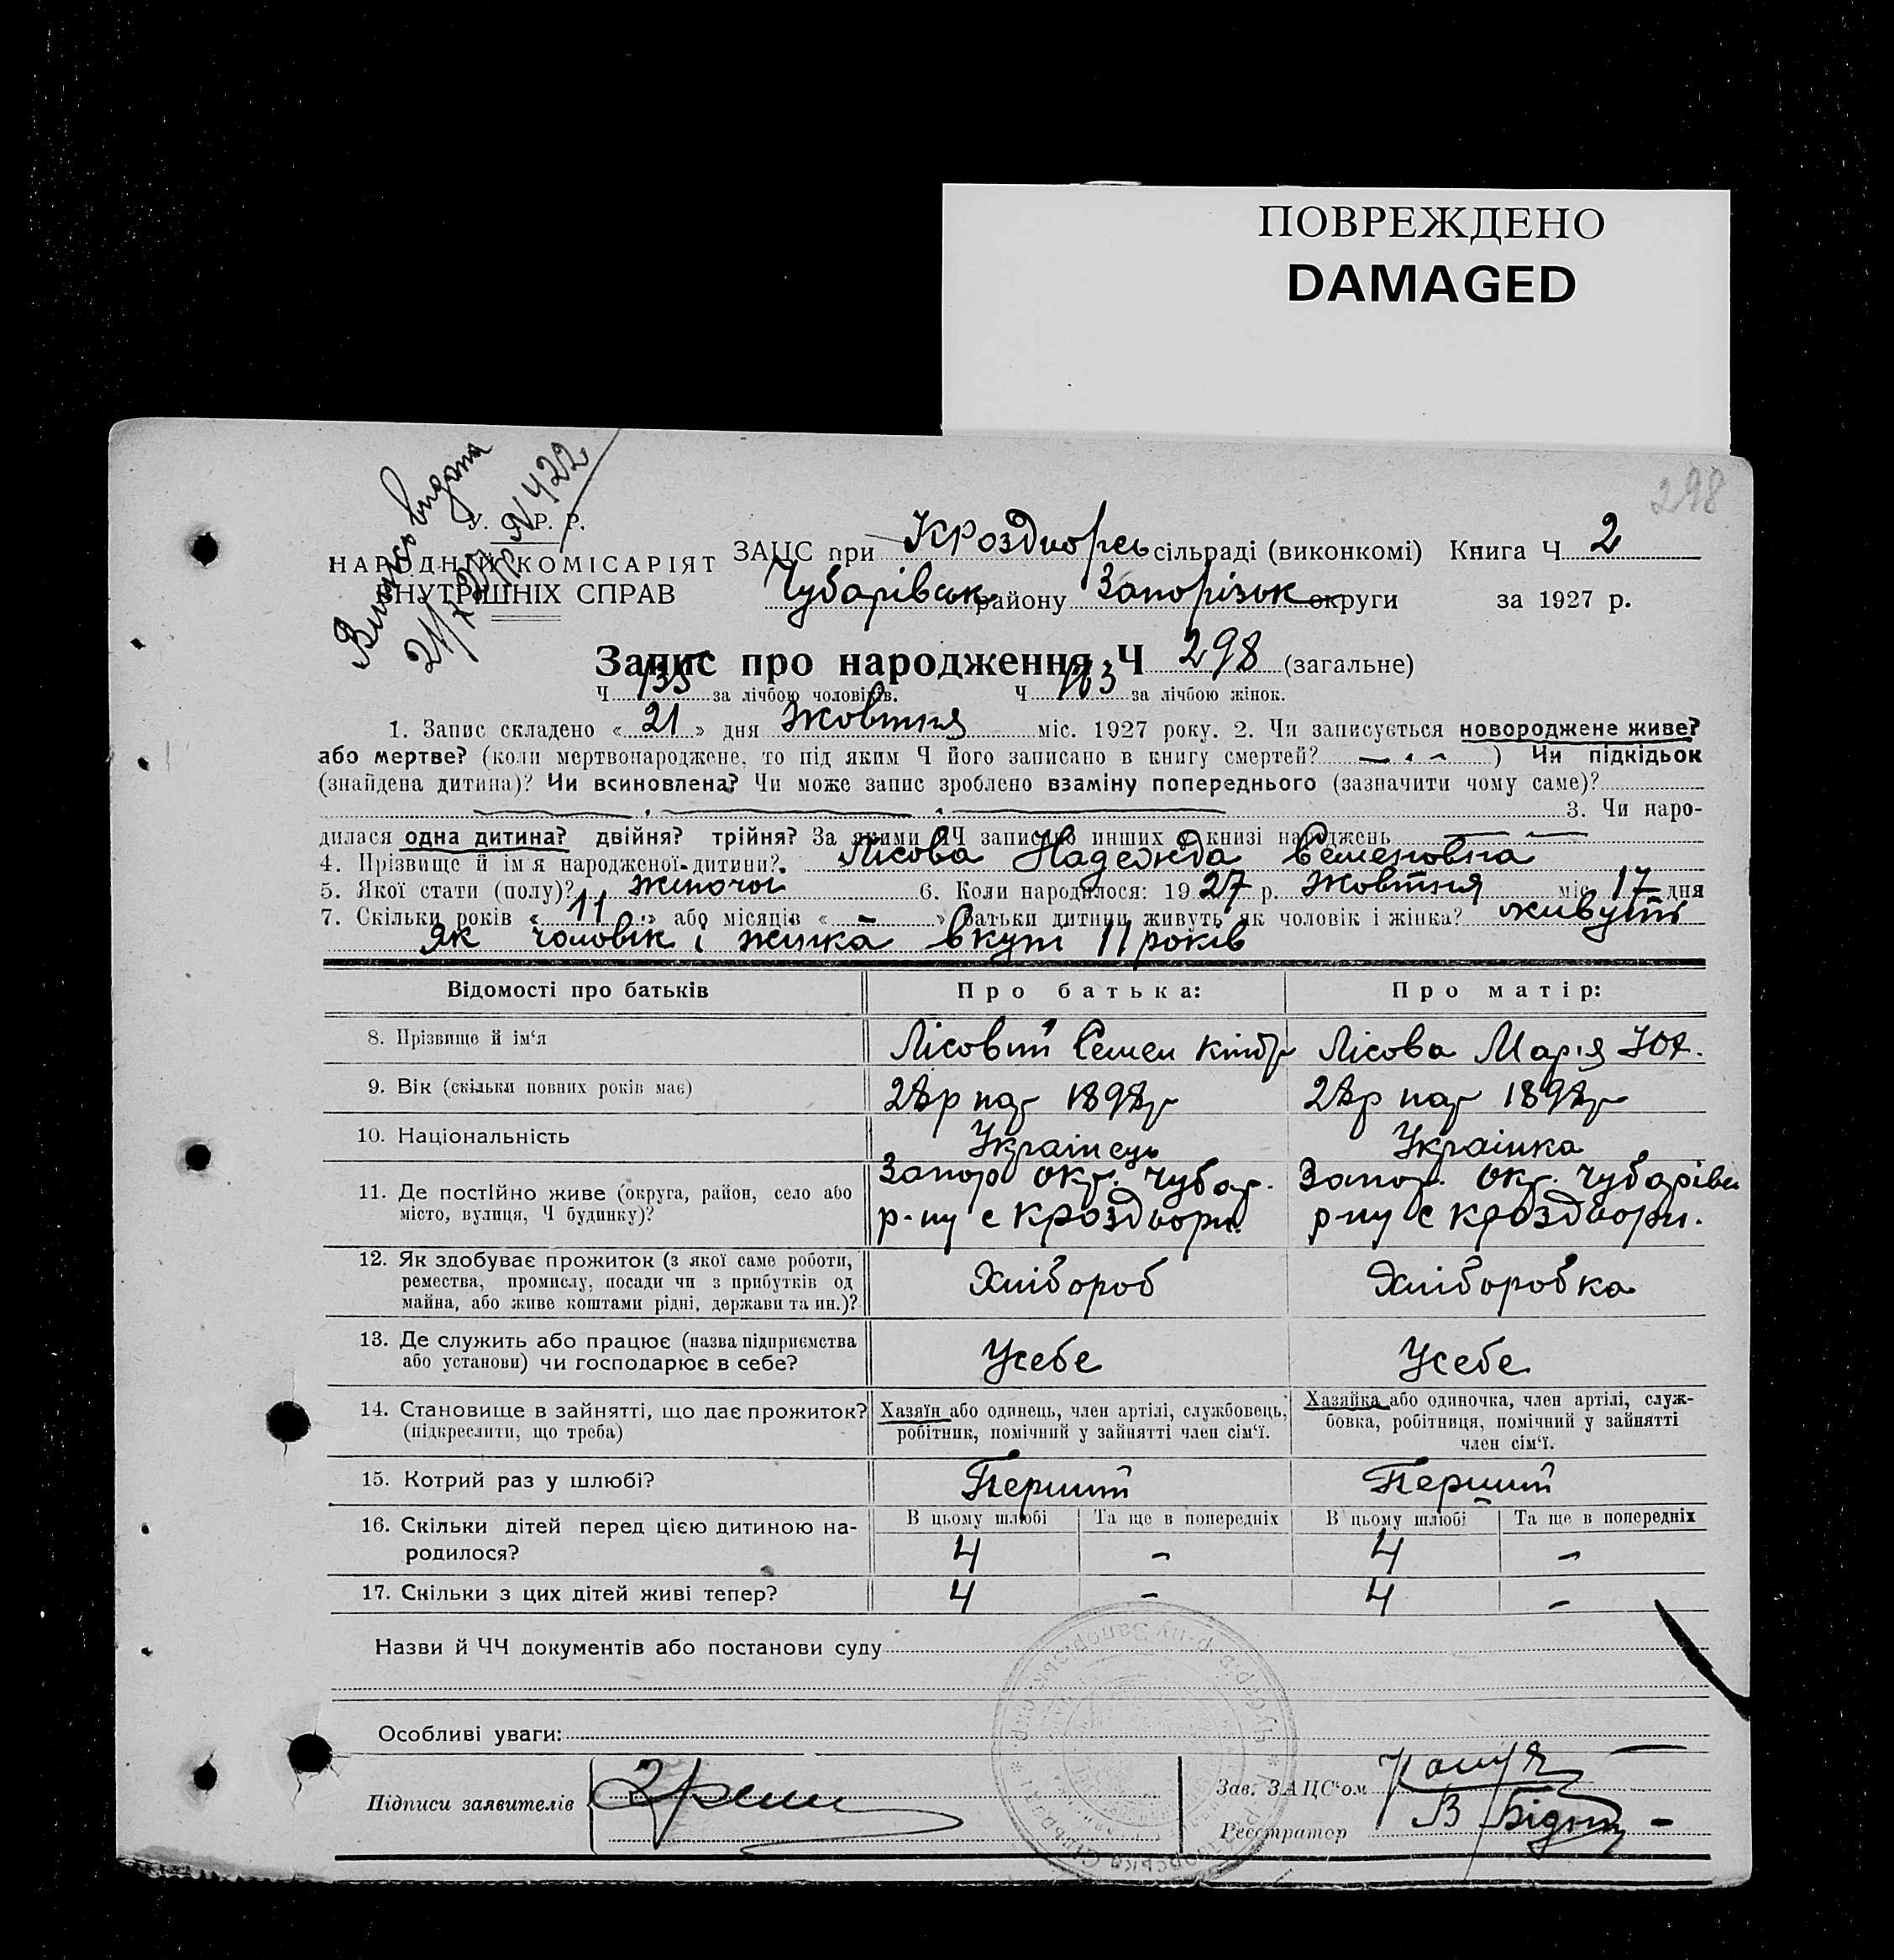 ПОВРЕЖДЕНО
DAMAGED
298
Випись видана
21/X 27 р N 422
У. С. Р. Р.
НАРОДНИЙ КОМІСАРІЯТ
ВНУТРІШНІХ СПРАВ
ЗАЦС при Кроздворсь сільраді (виконкомі) Книга Ч 2
Чубарівськ району Запорізьк округи за 1927 р.
Запис про народження Ч 298 (загальне)
Ч 135 за лічбою чоловіків. Ч 163 за лічбою жінок.
1. Запис складено « 21 » дня Жовтня міс. 1927 року. 2. Чи записується новороджене живе?
або мертве? (коли мертвонароджене, то під яким Ч його записано в книгу смертей? — ) Чи підкідьок
(знайдена дитина)? Чи всиновлена? Чи може запис зроблено взаміну попереднього (зазначити чому саме)?
3. Чи наро-
дилася одна дитина? двійня? трійня? За якими ЧЧ записано инших у книзі народжень — —
4. Прізвище й ім'я народженої-дитини? Лісова Надежда Семеновна
5. Якої стати (полу)? жіночої 6. Коли народилося: 1927 р. Жовтня міс 17 дня
7. Скільки років « 11 » або місяців « - » батьки дитини живуть як чоловік і жінка? живуть
як чоловік і жінка вкупі 11 років
Відомості про батьків Про батька: Про матір:
8. Прізвище й ім'я Лісовий Семен Кіндр Лісова Марія Юх.
9. Вік (скільки повних років має) 28 р нар 1898 р 28 р нар 1898 р
10. Національність Українець Українка
11. Де постійно живе (округа, район, село або Запор окр. Чубар. Запор. окр. Чубарівсь
місто, вулиця, Ч будинку)? р-ну с Кроздворн. р-ну с Кроздворн.
12. Як здобуває прожиток (з якої саме роботи,
ремества, промислу, посади чи з прибутків од Хлібороб Хліборобка
майна, або живе коштами рідні, держави та ин.)?
13. Де служить або працює (назва підприємства
або установи) чи господарює в себе? Усебе Усебе
14. Становище в зайнятті, що дає прожиток? Хазяїн або одинець, член артілі, службовець, Хазяйка або одиночка, член артілі, служ-
(підкреслити, що треба) робітник, помічний у зайнятті член сім'ї. бовка, робітниця, помічний у зайнятті
член сім'ї.
15. Котрий раз у шлюбі? Перший Перший
16. Скільки дітей перед цією дитиною на- В цьому шлюбі Та ще в попередніх В цьому шлюбі Та ще в попередніх
родилося? 4 - 4 -
17. Скільки з цих дітей живі тепер? 4 - 4 -
Назви й ЧЧ документів або постанови суду
Особливі уваги:
Підписи заявителів
Зав. ЗАЦС'ом
Реєстратор